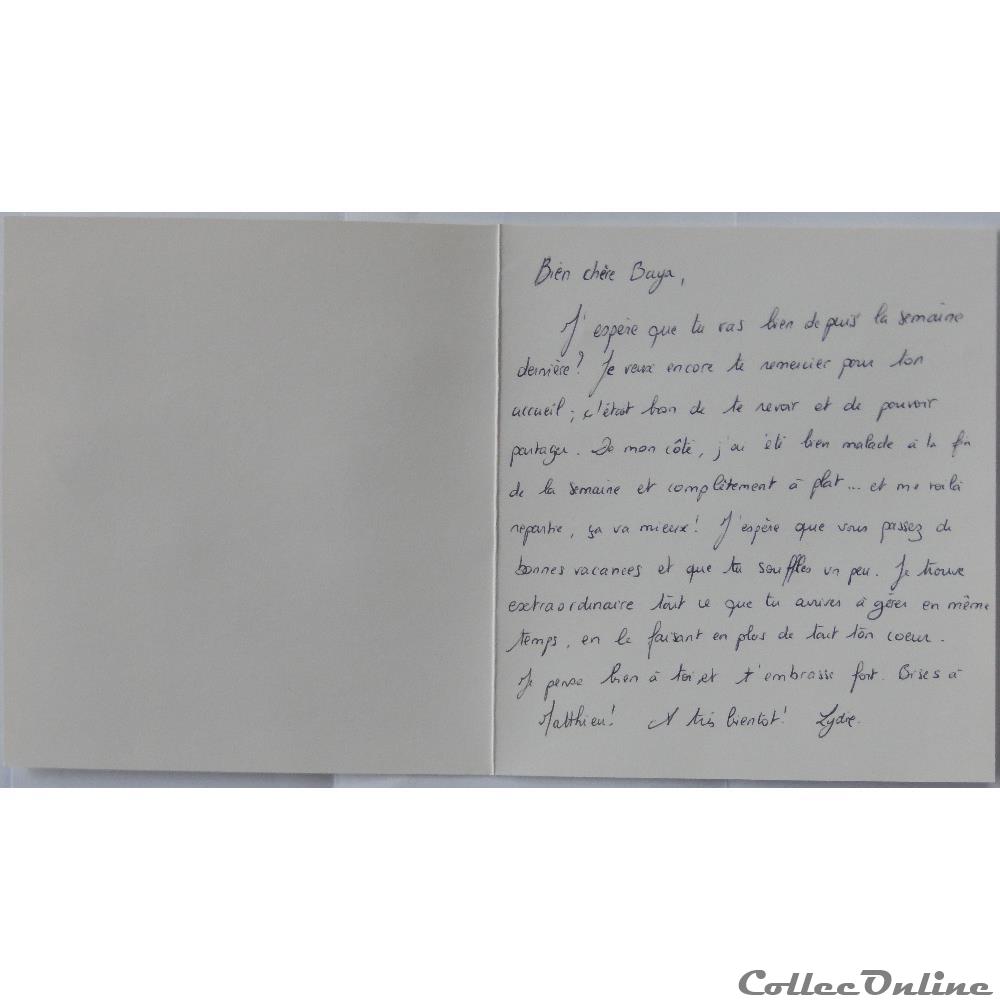 Bien chère Baya,
J'espère que tu vas bien depuis la semaine
dernière ? Je veux encore te remercier pour ton
accueil ; c'était bon de te revoir et de pouvoir
partager. De mon côté, j'ai été bien malade à la fin
de la semaine et complètement à plat... et me voilà
repartie, ça va mieux ! J'espère que vous passez de
bonnes vacances et que tu souffles un peu. Je trouve
extraordinaire tout ce que tu arrives à gérer en même
temps, en le faisant en plus de tout ton coeur.
Je pense bien à toi et t'embrasse fort. Bises à
Matthieu ! A très bientôt ! Lydie.
CollecOnline